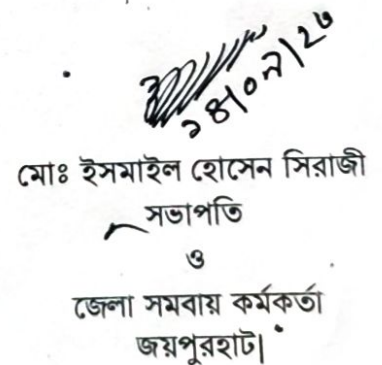 ১৪/০৭/২৬
মোঃ ইসমাইল হোসেন সিরাজী
সভাপতি
ও
জেলা সমবায় কর্মকর্তা
জয়পুরহাট।